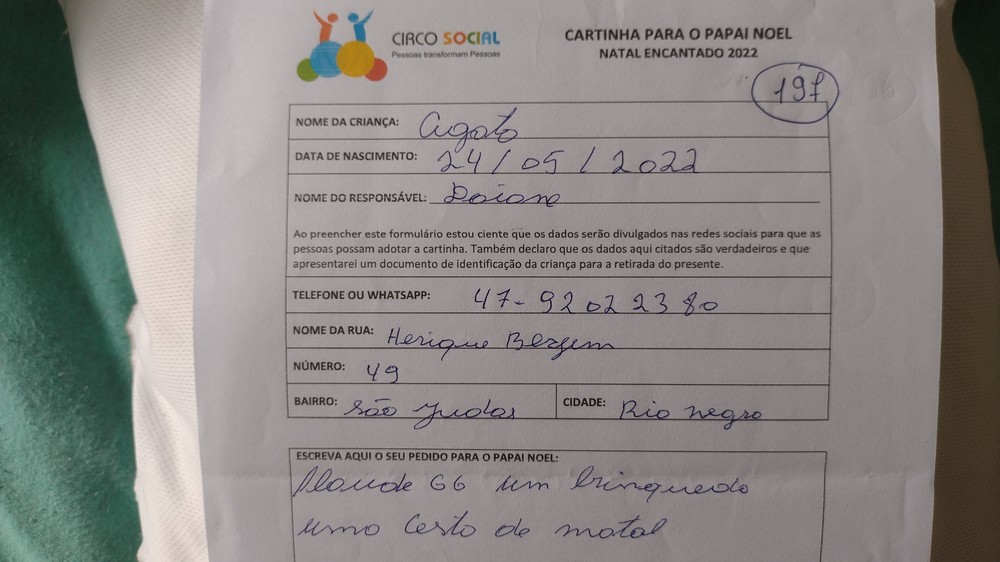 CIRCO SOCIAL
Pessoas transformam Pessoas
CARTINHA PARA O PAPAI NOEL
NATAL ENCANTADO 2022
197
NOME DA CRIANÇA: Agata
DATA DE NASCIMENTO: 24/05/2022
NOME DO RESPONSÁVEL: Daiane
Ao preencher este formulário estou ciente que os dados serão divulgados nas redes sociais para que as
pessoas possam adotar a cartinha. Também declaro que os dados aqui citados são verdadeiros e que
apresentarei um documento de identificação da criança para a retirada do presente.
TELEFONE OU WHATSAPP: 47-92022380
NOME DA RUA: Herique
NÚMERO: 49
BAIRRO: São Judas CIDADE: Rio negro
ESCREVA AQUI O SEU PEDIDO PARA O PAPAI NOEL:
GG um brinquedo
uma Cesta de natal